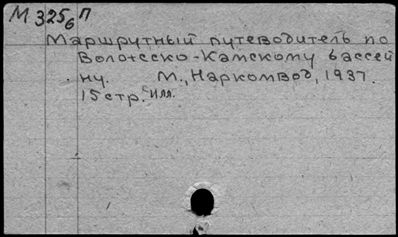 М 3256 П
Маршрутный путеводитель по
Волжско-Камскому бассей
ну. М., Наркомвод, 1937.
15 стр. с илл.